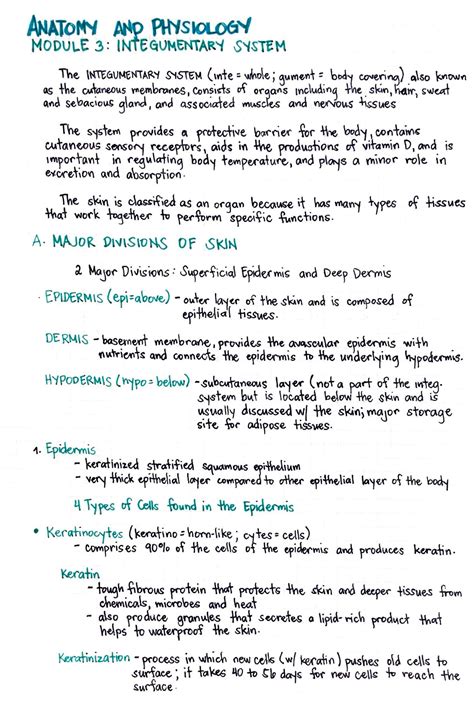 ANATOMY AND PHYSIOLOGY
MODULE 3: INTEGUMENTARY SYSTEM
The INTEGUMENTARY SYSTEM (inte = whole; gument = body covering) also known
as the cutaneous membranes, consists of organs including the skin, hair, sweat
and sebacious gland, and associated muscles and nervous tissues
The system provides a protective barrier for the body, contains
cutaneous sensory receptors, aids in the productions of vitamin D, and is
important in regulating body temperature, and plays a minor role in
excretion and absorption.
The skin is classified as an organ because it has many types of tissues
that work together to perform specific functions.
A. MAJOR DIVISIONS OF SKIN
2 Major Divisions: Superficial Epidermis and Deep Dermis
· EPIDERMIS (epi=above) - outer layer of the skin and is composed of
epithelial tissues.
DERMIS - basement membrane, provides the avascular epidermis with
nutrients and connects the epidermis to the underlying hypodermis.
HYPODERMIS (hypo = below) - subcutaneous layer (not a part of the integ-
system but is located below the skin and is
usually discussed w/ the skin; major storage
site for adipose tissues.
1. Epidermis
- keratinized stratified squamous epithelium
- very thick epithelial layer compared to other epithelial layer of the body
4 Types of Cells found in the Epidermis
• Keratinocytes (keratino = horn-like ; cytes = cells)
- comprises 90% of the cells of the epidermis and produces keratin.
Keratin
- tough fibrous protein that protects the skin and deeper tissues from
chemicals, microbes and heat
- also produce granules that secretes a lipid-rich product that
helps to waterproof the skin.
Keratinization - process in which new cells (w/ keratin) pushes old cells to
surface ; it takes 40 to 56 days for new cells to reach the
surface.